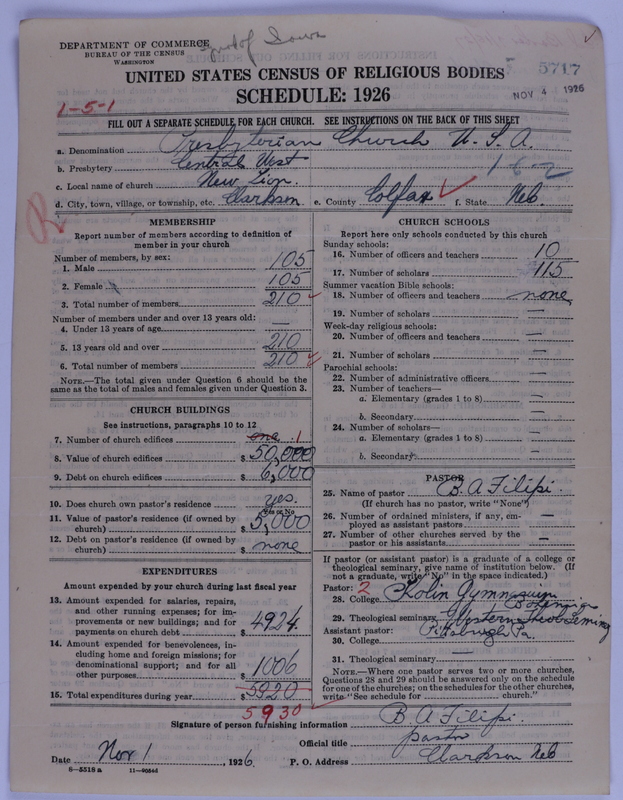 DEPARTMENT OF COMMERCE
BUREAU OF THE CENSUS
WASHINGTON
Synod of Iowa
5717
NOV 4 1926
UNITED STATES CENSUS OF RELIGIOUS BODIES
SCHEDULE: 1926
1-5-1
FILL OUT A SEPARATE SCHEDULE FOR EACH CHURCH. SEE INSTRUCTIONS ON THE BACK OF THIS SHEET
a. Denomination Presbyterian Church U.S.A.
b. Presbytery Central West 1-6-2
c. Local name of church New Zion.
d. City, town, village, or township, etc. Clarkson e. County Colfax f. State Neb
MEMBERSHIP
Report number of members according to definition of
member in your church
Number of members, by sex:
1. Male 105
2. Female 105
3. Total number of members 210
Number of members under and over 13 years old:
4. Under 13 years of age —
5. 13 years old and over 210
6. Total number of members 210
NOTE.—The total given under Question 6 should be
same as the total of males and females given under Question 3.
CHURCH BUILDINGS
See instructions, paragraphs 10 to 12
7. Number of church edifices one 1
8. Value of church edifices $ 50,000
9. Debt on church edifices $ 6,000
10. Does church own pastor's residence yes.
Yes or No
11. Value of pastor's residence (if owned by
church) $ 5,000
12. Debt on pastor's residence (if owned by
church) $ none
EXPENDITURES
Amount expended by your church during last fiscal year
13. Amount expended for salaries, repairs,
and other running expenses; for im-
provements or new buildings; and for
payments on church debt $ 4924.
14. Amount expended for benevolences, in-
cluding home and foreign missions; for
denominational support; and for all
other purposes $ 1006
15. Total expenditures during year $ 5920
5930
CHURCH SCHOOLS
Report here only schools conducted by this church
Sunday schools:
16. Number of officers and teachers 10
17. Number of scholars 115
Summer vacation Bible schools:
18. Number of officers and teachers none
19. Number of scholars —
Week-day religious schools:
20. Number of officers and teachers —
21. Number of scholars —
Parochial schools:
22. Number of administrative officers —
23. Number of teachers—
a. Elementary (grades 1 to 8) —
b. Secondary —
24. Number of scholars—
a. Elementary (grades 1 to 8) —
b. Secondary —
PASTOR
25. Name of pastor B. A Filipi
(If church has no pastor, write "None")
26. Number of ordained ministers, if any, em-
ployed as assistant pastors —
27. Number of other churches served by the
pastor or his assistants —
If pastor (or assistant pastor) is a graduate of a college or
theological seminary, give name of institution below. (If
not a graduate, write "No" in the space indicated.)
Pastor: 2
28. College Kolin Gymnasium
29. Theological seminary Western Theol Seminary
Assistant pastor: Pittsburgh Pa.
30. College
31. Theological seminary —
NOTE.—Where one pastor serves two or more churches,
Questions 28 and 29 should be answered only on the schedule
for one of the churches; on the schedules for the other churches,
write "See schedule for church."
Signature of person furnishing information B. A Filipi.
Official title pastor
Date Nov 1, 1926 P. O. Address Clarkson Neb
8—5518 a 11—9054d